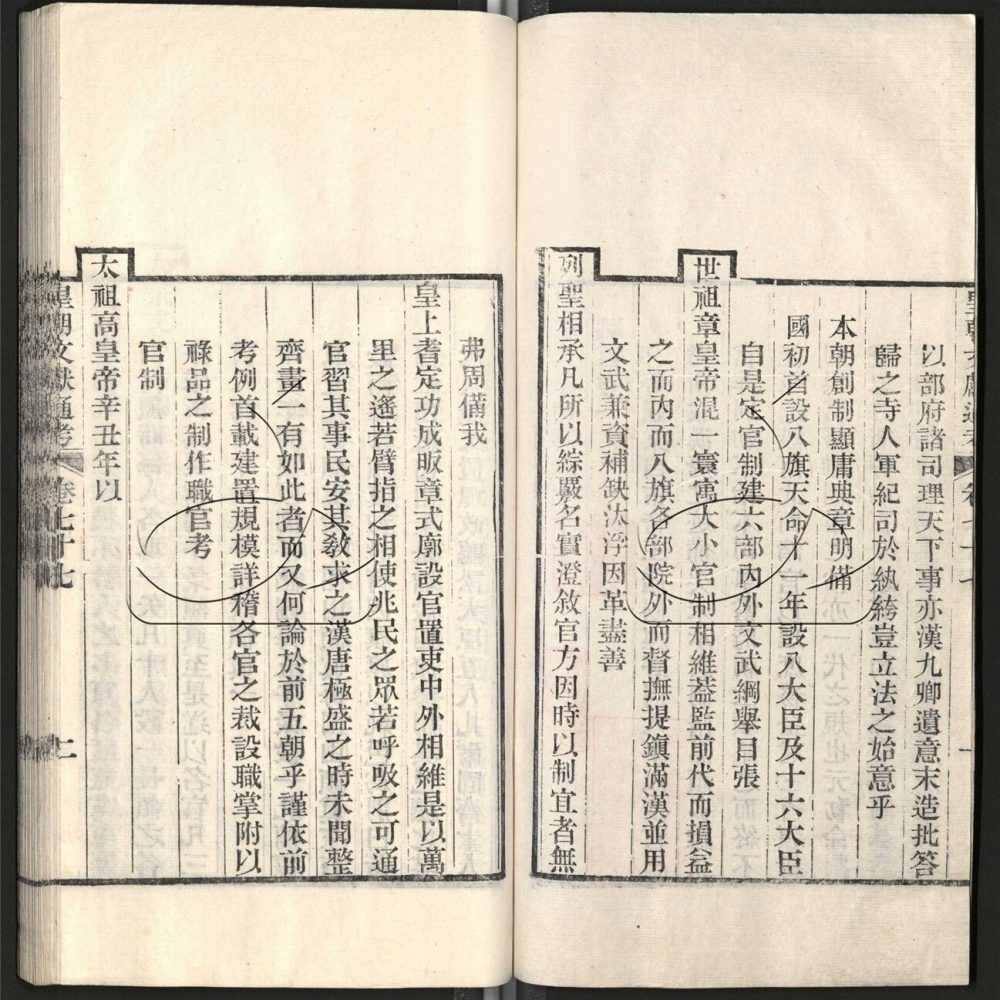 以部府諸司理天下事亦漢九卿遺意末造批答
歸之寺人軍紀司於紈絝豈立法之始意乎
本朝創制顯庸典章明備
國初首設八旗天命十一年設八大臣及十六大臣
自是定官制建六部內外文武綱舉目張
世祖章皇帝混一寰寓大小官制相維葢監前代而損益
之而內而八旗各部院外而督撫提鎭滿漢並用
文武兼資補缺汰浮因革盡善
列聖相承凡所以綜嚴名實澄敘官方因時以制宜者無
弗周備我
皇上耆定功成昄章式廓設官置吏中外相維是以萬
里之遙若臂指之相使兆民之眾若呼吸之可通
官習其事民安其敎求之漢唐極盛之時未聞整
齊畫一有如此者而又何論於前五朝乎謹依前
考例首載建置規模詳稽各官之裁設職掌附以
祿品之制作職官考
官制
太祖高皇帝辛丑年以
皇朝文獻通考 卷七十七 二